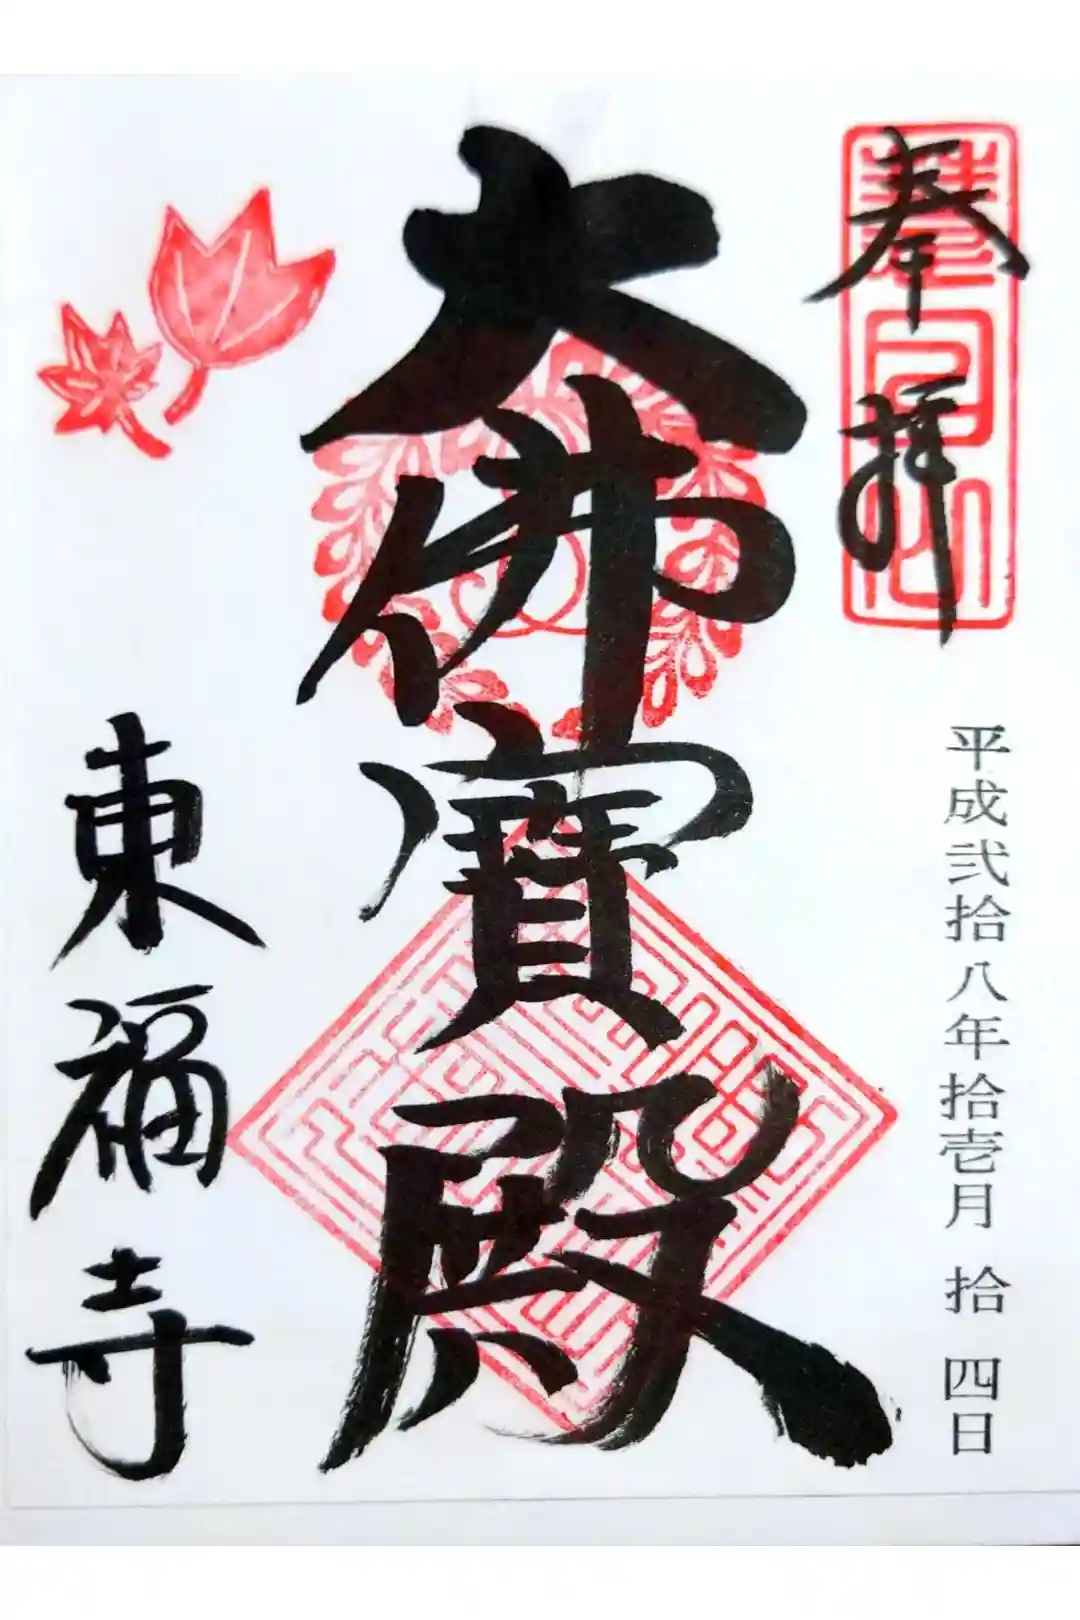 奉拝
平成弐拾八年拾壱月拾四日
大佛寶殿
東福寺